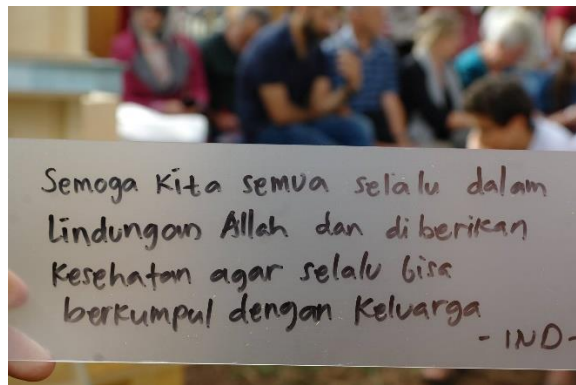 Semoga Kita semua selalu dalam
lindungan Allah dan di berikan
Kesehatan agar selalu bisa
berkumpul dengan Keluarga
- IND -